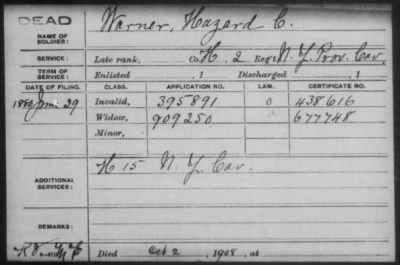 DEAD
NAME OF SOLDIER: Warner, Hazard C.
SERVICE: Late rank, Co. H, 2 Reg't N. Y. Prov. Cav.
TERM OF SERVICE: Enlisted , 1 Discharged , 1
DATE OF FILING. CLASS. APPLICATION NO. LAW. CERTIFICATE NO.
1880 Jun. 29 Invalid, 395891 O 438616
Widow, 909250 677748
Minor,
ADDITIONAL SERVICES: H 15 N. Y. Cav.
REMARKS:
Died Oct 2, 1908, at